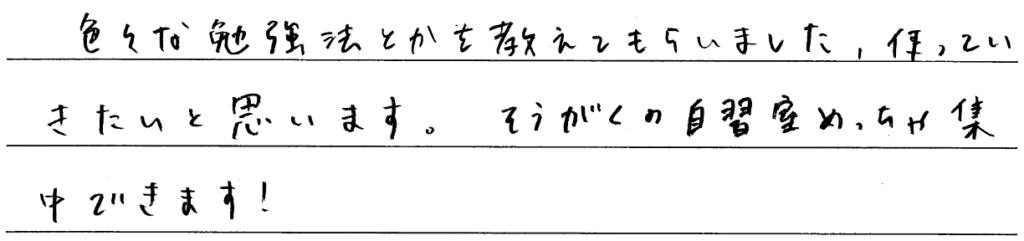 色々な勉強法とかを教えてもらいました，使ってい
きたいと思います。 そうがくの自習室めっちゃ集
中できます！